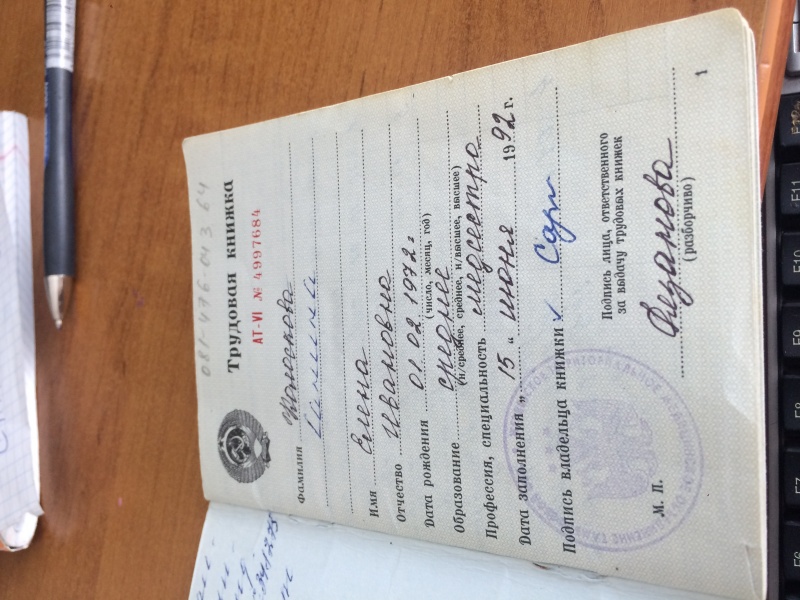 081-476-043 64
Трудовая книжка
АТ-VI № 4997684
Фамилия
Имя Елена
Отчество Ивановна
Дата рождения 01.02 1972г
(число, месяц, год)
Образование среднее
(н/среднее, среднее, н/высшее, высшее)
Профессия, специальность медсестра
Дата заполнения „15 „ июня 1992 г.
Подпись владельца книжки
Подпись лица, ответственного
за выдачу трудовых книжек
(разборчиво)
М. П.
1
F11
F10
F9
F8
F7
F6